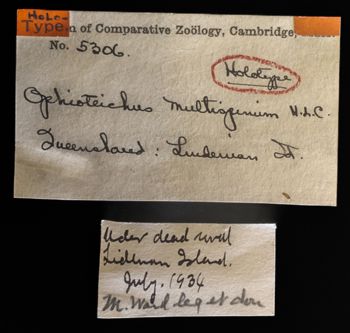 Holo-
Type. n of Comparative Zoölogy, Cambridge,
No. 5306.
Holotype
Ophioteichus multispinum H.L.C.
Queensland: Lindeman Is.
Under dead coral
Lindeman Island.
July. 1934
M. Ward leg et don